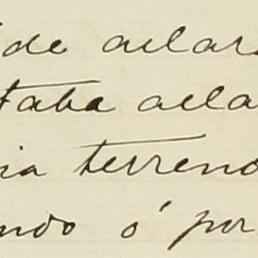 ide aclar
taba acla
ia terreno
ndo ó por